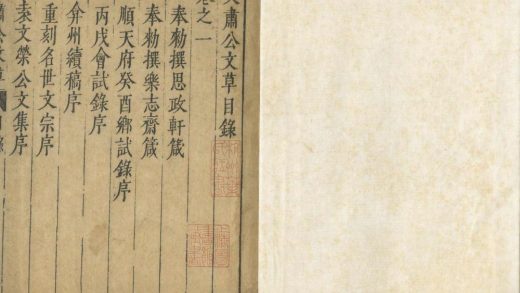 文肅公文草目錄
卷之一
奉勑撰思政軒箴
奉勑撰樂志齋箴
順天府癸酉鄉試錄序
丙戌會試錄序
弇州續稿序
重刻名世文宗序
袁文榮公文集序
肅公文草 目錄